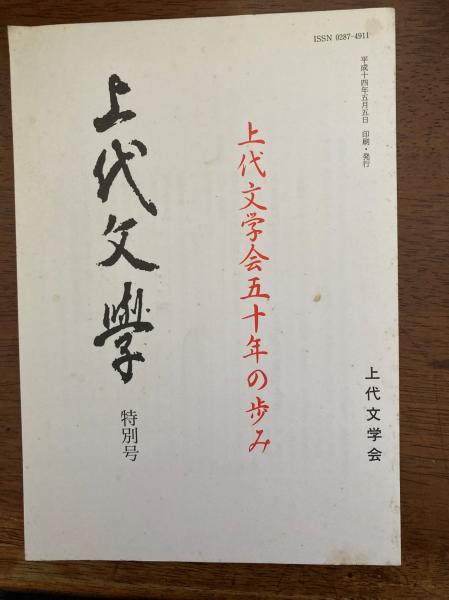 ISSN 0287-4911
平成十四年五月五日　印刷・発行
上代文学会五十年の歩み
上代文學
特別号
上代文学会